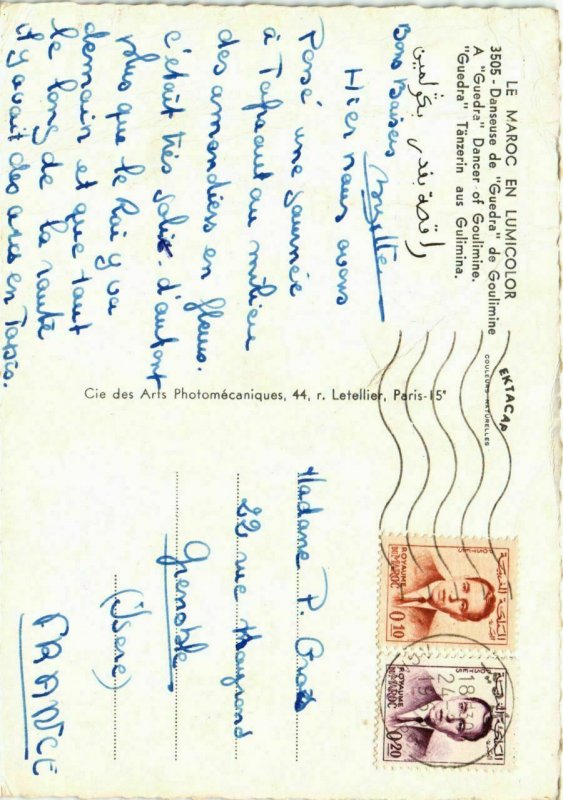 LE MAROC EN LUMICOLOR
3505 - Danseuse de "Guedra" de Goulimine
A "Guedra" Dancer of Goulimine.
"Guedra" Tänzerin aus Gulimina.
راقصة بفن بكولمين
Bons Baisers
Hier nous avons
Passé une journée
à Tafraout au milieu
des amandiers en fleurs.
c'était très jolie. d'autant
plus que le Roi y va
demain et que tout
le long de la route
il y avait des arcs en Tapis.
Cie des Arts Photomécaniques, 44, r. Letellier, Paris-15e
EKTACHROME
COULEURS NATURELLES
Madame P.
22 rue
Grenoble
(Isère)
FRANCE
POSTES
ROYAUME
DU MAROC
0,10
المملكة المغربية
POSTES
ROYAUME
DU MAROC
0,20
المملكة المغربية